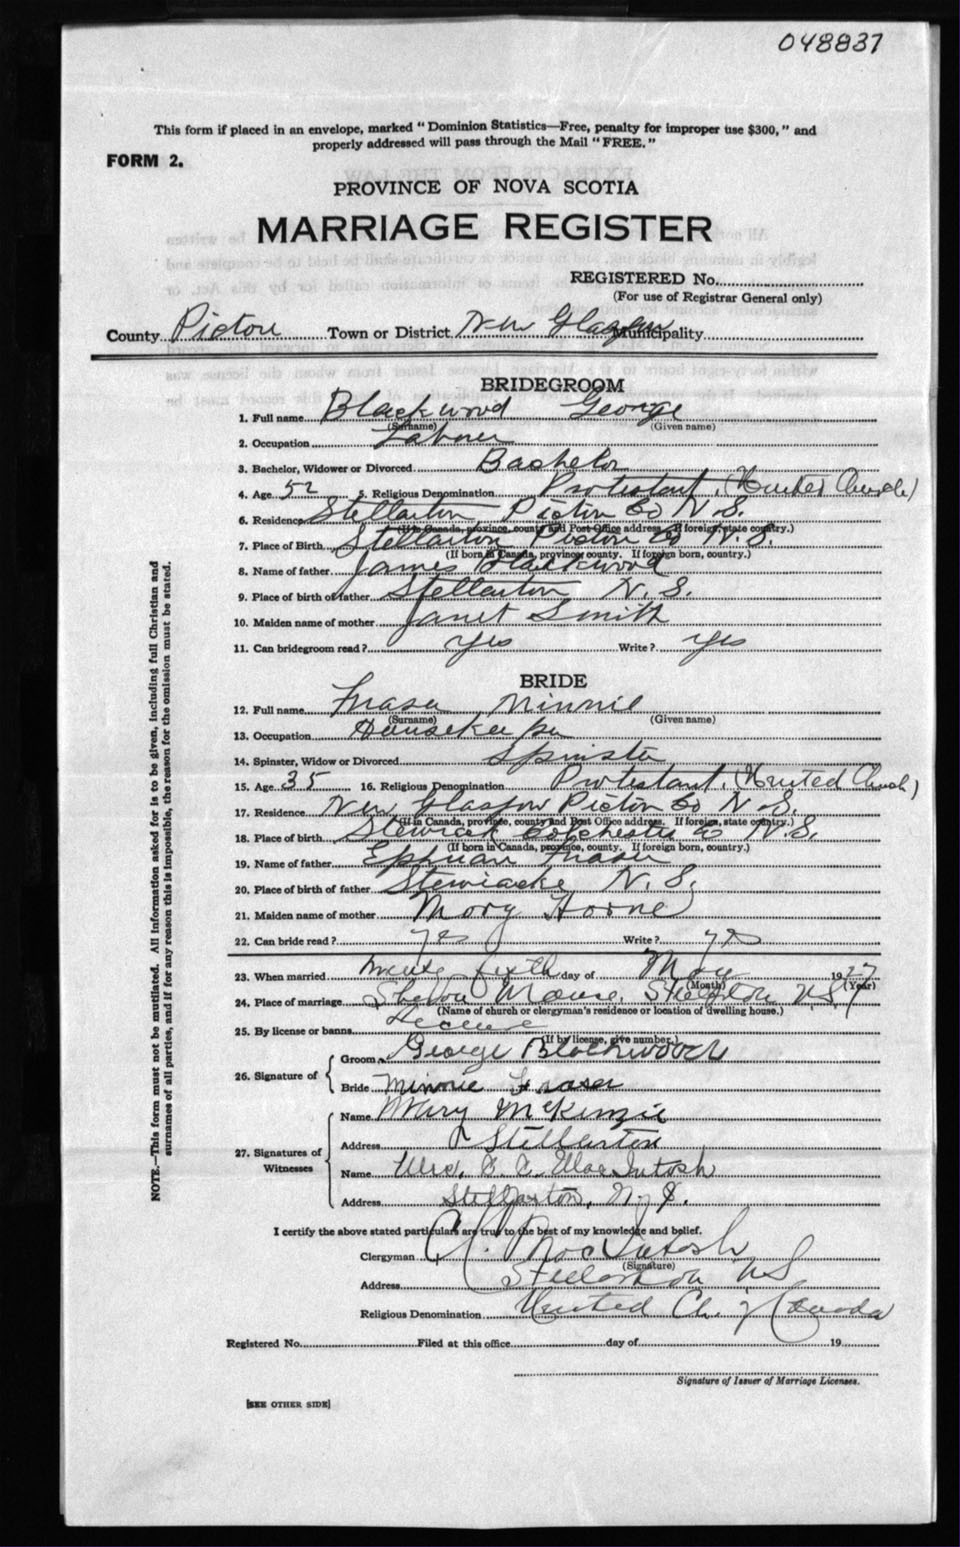 048837
This form if placed in an envelope, marked "Dominion Statistics—Free, penalty for improper use $300," and
properly addressed will pass through the Mail "FREE."
FORM 2.
PROVINCE OF NOVA SCOTIA
MARRIAGE REGISTER
REGISTERED No.
(For use of Registrar General only)
County Pictou Town or District New Glasgow Municipality
BRIDEGROOM
1. Full name Blackwood George
(Surname) (Given name)
2. Occupation Laborer
3. Bachelor, Widower or Divorced Bachelor
4. Age 52 5. Religious Denomination Protestant, (United Church)
6. Residence Stellarton Pictou Co N.S.
(If in Canada, province, county and Post Office address. If foreign, state country.)
7. Place of Birth Stellarton Pictou Co N.S.
(If born in Canada, province, county. If foreign born, country.)
8. Name of father James Blackwood
9. Place of birth of father Stellarton N.S.
10. Maiden name of mother Janet Smith
11. Can bridegroom read? yes Write? yes
BRIDE
12. Full name Fraser Minnie
(Surname) (Given name)
13. Occupation Housekeeper
14. Spinster, Widow or Divorced Spinster
15. Age 35 16. Religious Denomination Protestant, (United Church)
17. Residence New Glasgow Pictou Co N.S.
(If in Canada, province, county and Post Office address. If foreign, state country.)
18. Place of birth Colchester Co N.S.
(If born in Canada, province, county. If foreign born, country.)
19. Name of father Fraser
20. Place of birth of father Stewiacke N.S.
21. Maiden name of mother Mary Horne
22. Can bride read? yes Write? yes
23. When married sixth day of May 1927
(Month) (Year)
24. Place of marriage Manse, Stellarton, N.S.
(Name of church or clergyman's residence or location of dwelling house.)
25. By license or banns License
(If by license, give number.)
26. Signature of { Groom George Blackwood
Bride Minnie Fraser
27. Signatures of Witnesses { Name Mary McKenzie
Address Stellarton
Name Mrs. C. C. MacIntosh
Address Stellarton, N.S.
I certify the above stated particulars are true to the best of my knowledge and belief.
Clergyman MacIntosh
(Signature)
Address Stellarton N.S.
Religious Denomination United Ch. of Canada
Registered No. Filed at this office day of 19
Signature of Issuer of Marriage Licenses.
[SEE OTHER SIDE]
NOTE.—This form must not be mutilated. All information asked for is to be given, including full Christian and
surnames of all parties, and if for any reason this is impossible, the reason for the omission must be stated.